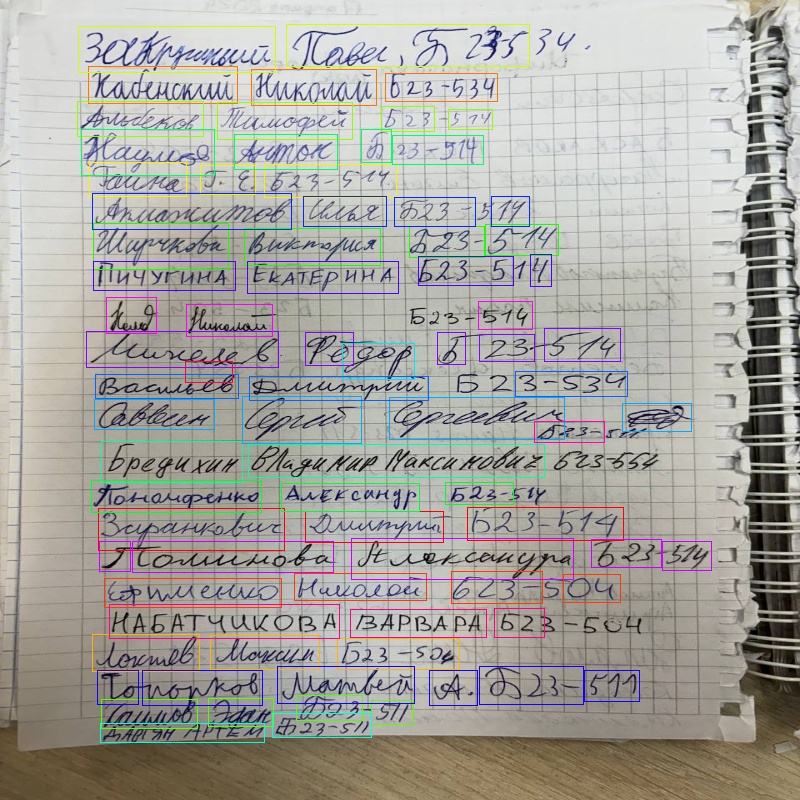 Павел, Б23-534.
Кабенский Николай Б23-534
Альбеков Тимофей Б23-514
Наумов Антон Б23-514
Гаина Г. Е. Б23-514.
Илья Б23-514
Ширчкова Виктория Б23-514
ПИЧУГИНА ЕКАТЕРИНА Б23-514
Николай Б23-514
Михалев Фёдор Б 23-514
Васильев Дмитрий Б23-534
Саввин Сергей Сергеевич
Б23-511
Бредихин Владимир Максимович Б23-554
Александр Б23-514
Заранкович Дмитрий Б23-514
Поминова Александра Б23-514
Ефименко Николай Б23-504
НАБАТЧИКОВА ВАРВАРА Б23-504
Локтев Максим Б23-504
Топорков Матвей А. Б23-511
Б23-511
АРТЕМ Б23-511